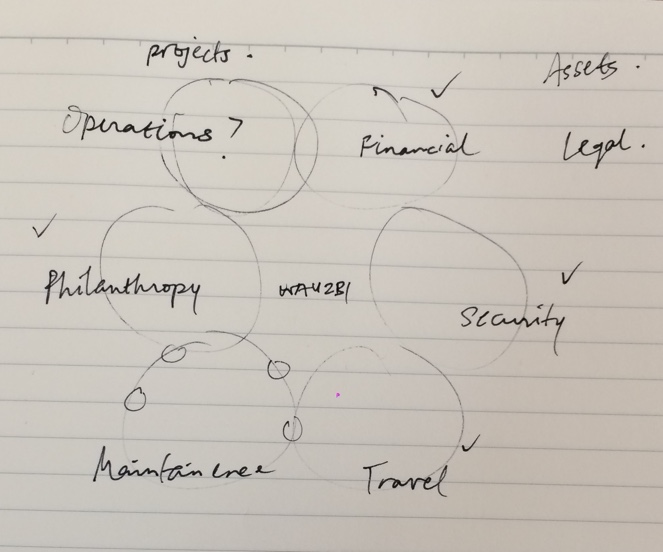 projects.
Assets.
Operations?
Financial
Legal.
Philanthropy
WAH2B1
Security
Maintainence
Travel